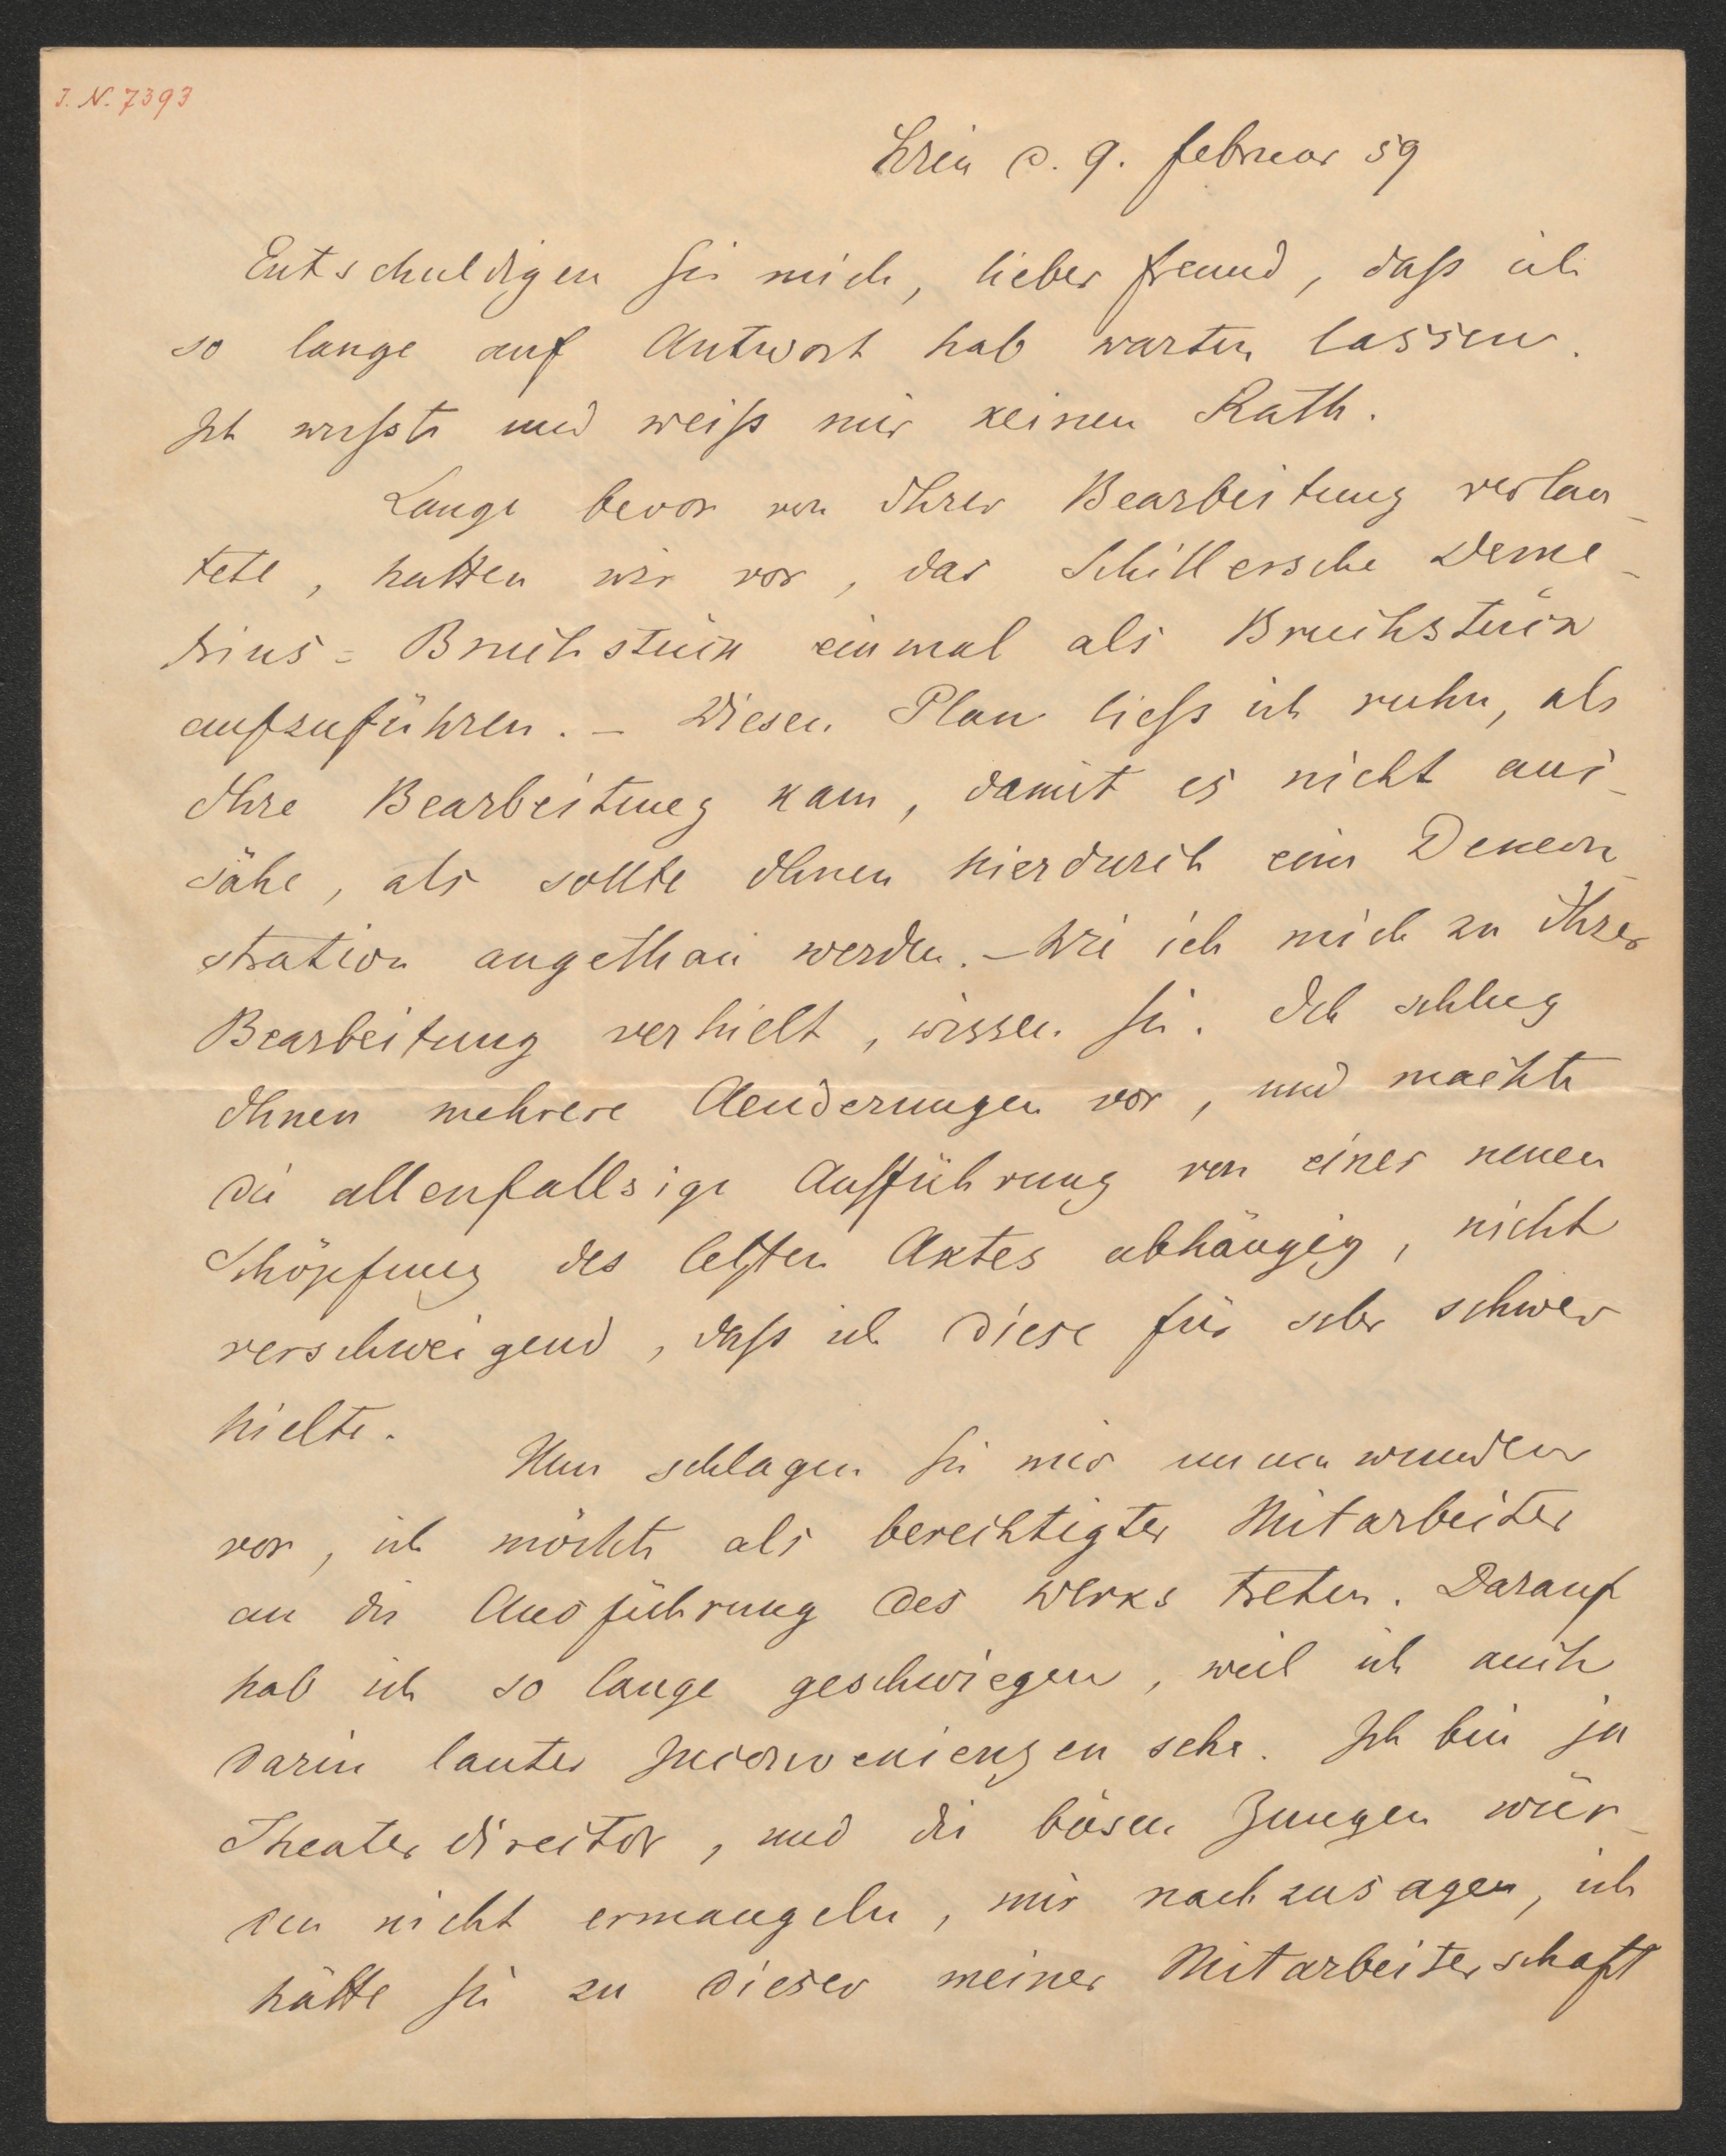 J. N. 7393
Wien d. 9. Februar 59
Entschuldigen Sie mich, lieber Freund, daß ich
so lange auf Antwort hab warten lassen.
Ich wußte und weiß mir keinen Rath.
Lange bevor von Ihrer Bearbeitung verlau-
tete, hatten wir vor, das Schillersche Deme-
trius=Bruchstück einmal als Bruchstück
aufzuführen. – Diesen Plan ließ ich ruhn, als
Ihre Bearbeitung kam, damit es nicht aus-
sähe, als sollte Ihnen hierdurch eine Demon-
stration angethan werden. – Wie ich mich zu Ihrer
Bearbeitung verhielt, wissen Sie. Ich schlug
Ihnen mehrere Aenderungen vor, und machte
die allenfallsige Aufführung von einer neuen
Schöpfung des letzten Aktes abhängig, nicht
verschweigend, daß ich diese für sehr schwer
hielte.
Nun schlagen Sie mir unumwunden
vor, ich möchte als berechtigter Mitarbeiter
an die Ausführung des Werks treten. Darauf
hab ich so lange geschwiegen, weil ich auch
darin lauter Inconvenienzen sehe. Ich bin ja
Theaterdirector, und die bösen Zungen wür-
den nicht ermangeln, mir nachzusagen, ich
hätte Sie zu dieser meiner Mitarbeiterschaft